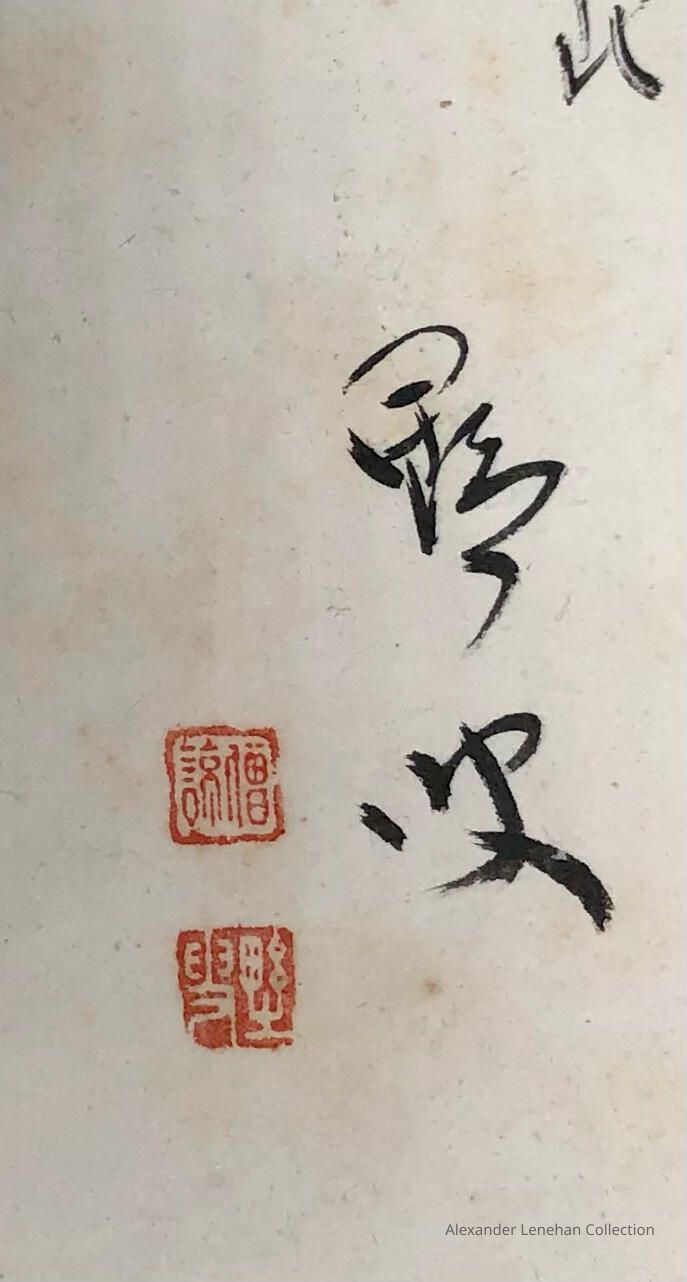 野叟
僧諒
野叟
Alexander Lenehan Collection